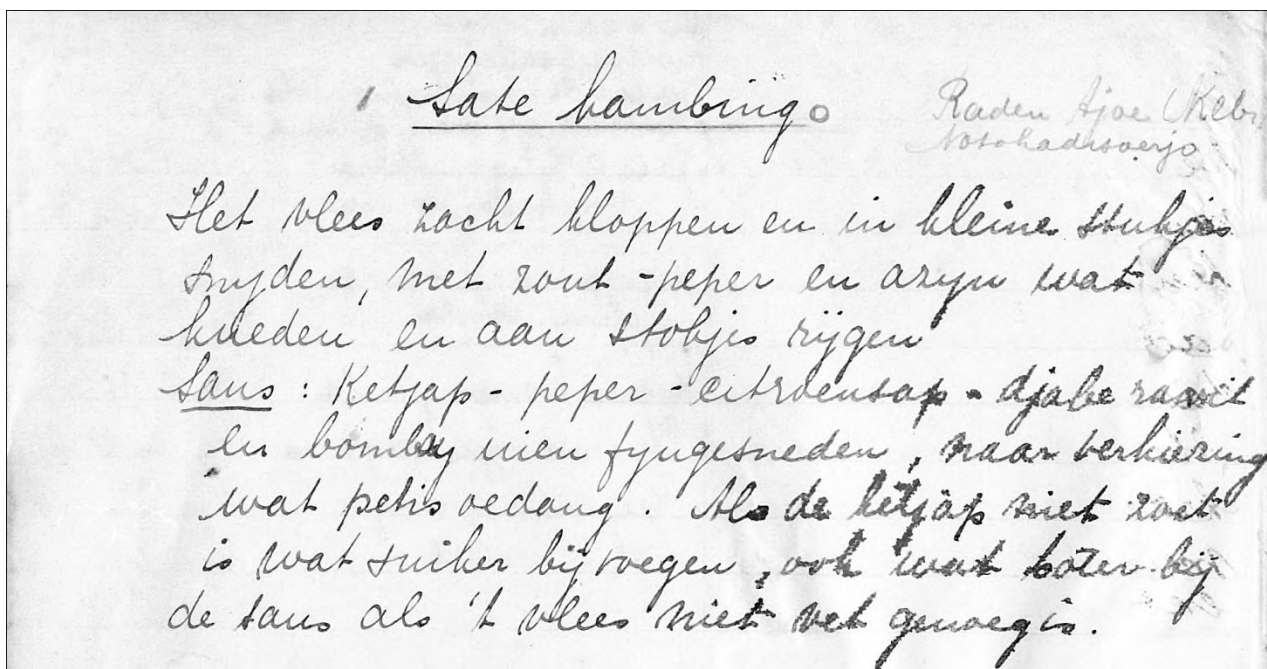 Sate kambing
Raden Ajoe
Het vlees zacht kloppen en in kleine stukjes
snyden, met zout - peper en azyn wat
kneden en aan stokjes rijgen
Saus : Ketjap - peper - citroensap - djabe rawit
en bombay uien fyngesneden, naar verkiezing
wat petis oedang. Als de ketjap niet zoet
is wat suiker bijvoegen, ook wat boter bij
de saus als 't vlees niet vet genoeg is.